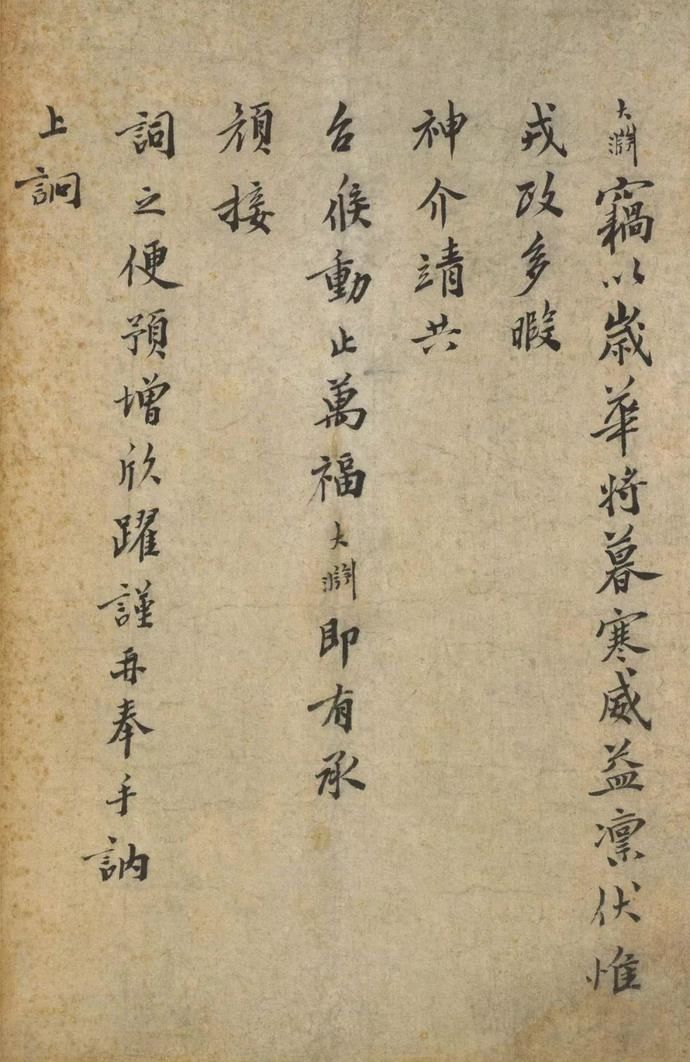 大淵竊以歲華將暮寒威益凜伏惟
戎政多暇
神介靖共
台候動止萬福大淵即有承
顏接
詞之便預增欣躍謹再奉手訥
上詗